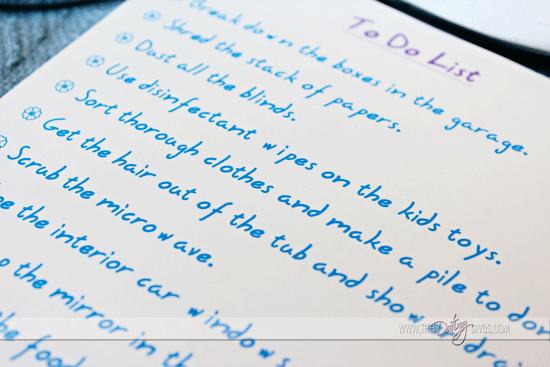 To Do List
Break down the boxes in the garage.
Shred the stack of papers.
Dust all the blinds.
Use disinfectant wipes on the kids toys.
Sort thorough clothes and make a pile to
Get the hair out of the tub and shower
Scrub the microwave.
the interior car windows
the mirror in
the food
WWW.THEDatingDIVAS.COM